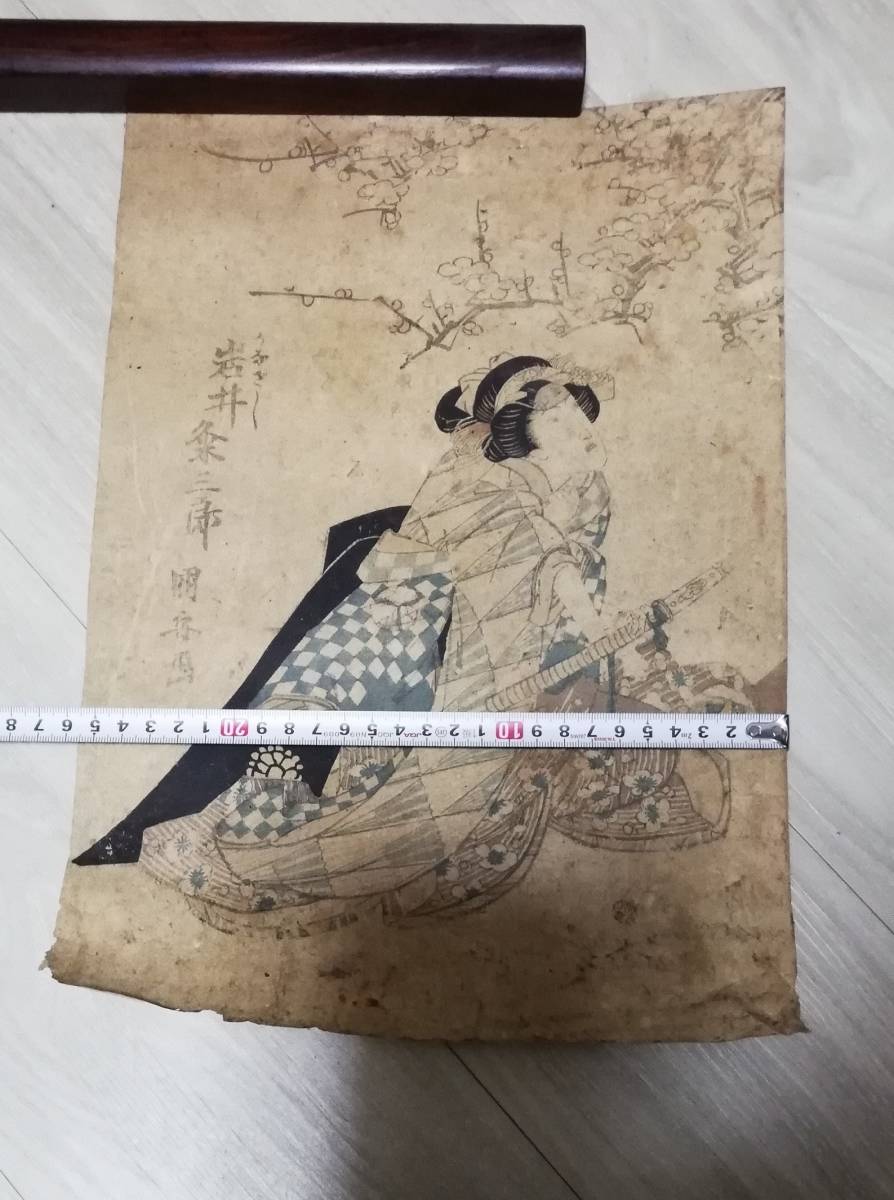 岩井粂三郎
国安画
8 7 6 5 4 3 2 1 20 9 8 7 6 5 4 3 2 1 10 9 8 7 6 5 4 3 2